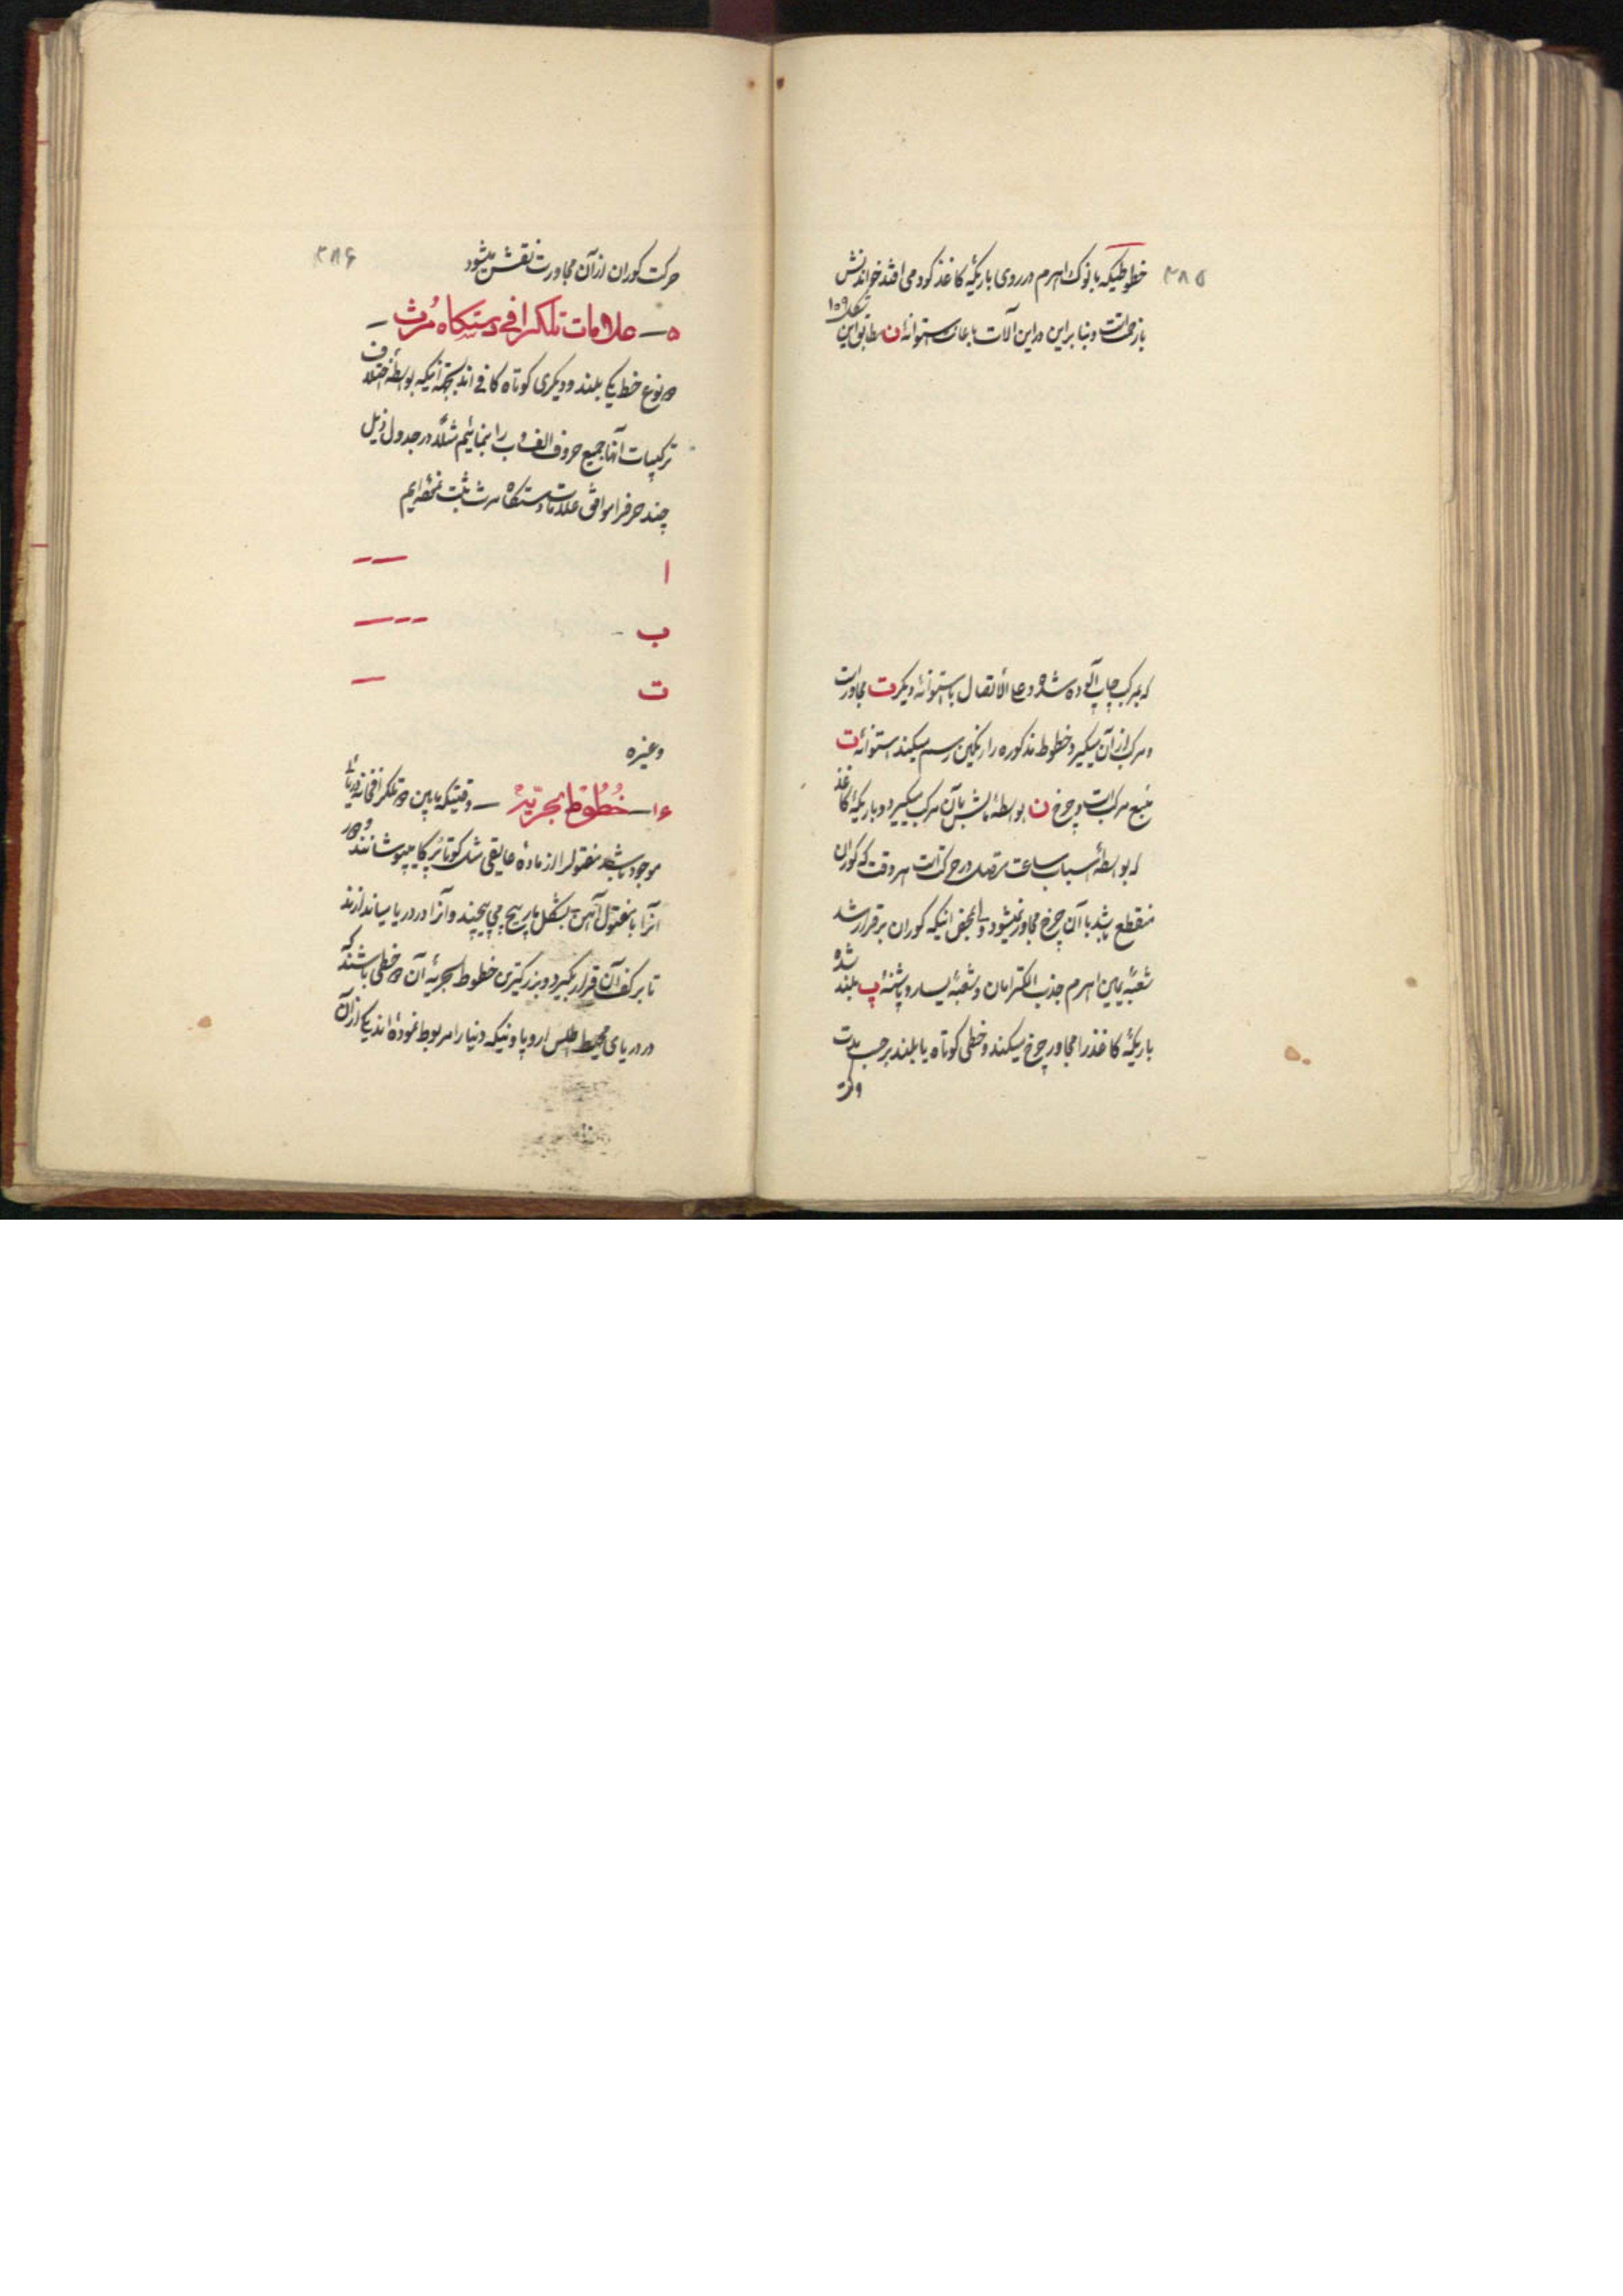 ۳۸۵
خطوطیکه با نوک اهرم در روی باریکهٔ کاغذ کود می افتد خواندنش
با زحمت است و بنا براین در این آلات باعانت استوانهٔ ن مطابق این
شکل ۱۵۹
که بمرکب چاپ آلوده شده و علی الاتصال با استوانهٔ دیگر ت مجاور است
و مرکب از آن میگیرد خطوط مذکوره را رنگین رسم میکند استوانهٔ ت
منبع مرکب است و چرخ ن بواسطهٔ مالشش بآن مرکب میگیرد و باریکهٔ کاغذ
که بواسطهٔ اسباب ساعت متصل در حرکت است هر وقت که کوران
منقطع باشد با آن چرخ مجاور نمیشود ولی بمحض اینکه کوران برقرار شد
شعبهٔ یمین اهرم جذب الکترامان و شعبهٔ یسار و پاشنهٔ پ بلند شده
باریکهٔ کاغذ را مجاور چرخ میکند و خطی کوتاه یا بلند برحسب مدت
حرکت
۳۸۶
حرکت کوران از آن مجاورت نقش میشود
۵ — علامات تلگرافی دستگاه مُرث —
دو نوع خط یکی بلند و دیگری کوتاه کافی اند بجهة اینکه بواسطهٔ اختلاف
ترکیبات آنها جمیع حروف الف و ب را بنمائیم مثلاً در جدول ذیل
چند حرف را موافق علامات دستگاه مرث ثبت نموده ایم
ا — —
ب — — —
ت —
وغیره
۱۶ — خُطُوط بحریّه — وقتیکه مابین دو تلگرافخانه دریائی
موجود باشد مفتول را از ماده عایقی مثل کوتاپرکا میپوشانند و دور
آنرا با مفتول آهن بشکل مارپیچ می پیچند و آنرا در دریا میاندازند
تا بر کف آن قرار بگیرد و بزرگترین خطوط بحریه آن دو خطی باشند که
در دریای محیط اطلس اروپا و ینیکه دنیا را مربوط نموده اند یکی از آن